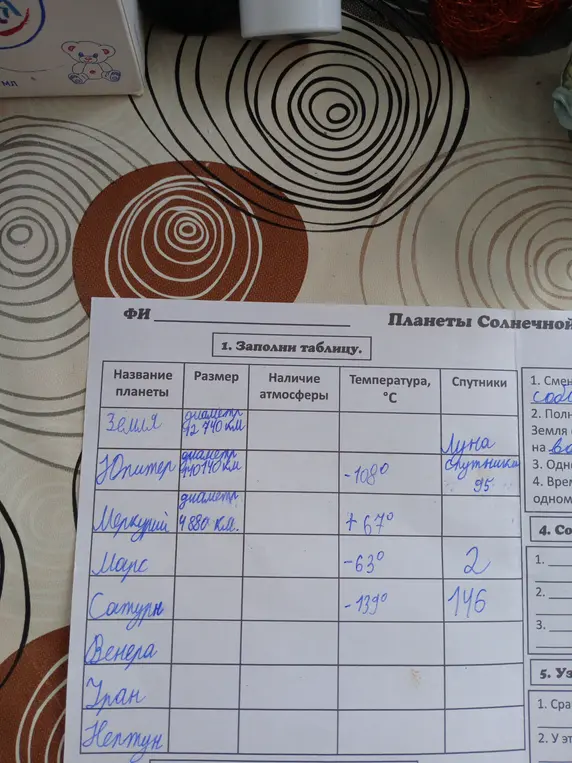 мл
ФИ
Планеты Солнечной
1. Заполни таблицу.
Название планеты Размер Наличие атмосферы Температура, °С Спутники
Земля диаметр 12 740 км Луна
Юпитер диаметр 140 140 км -108° спутники 95
Меркурий диаметр 4 880 км. +67°
Марс -63° 2
Сатурн -139° 146
Венера
Уран
Нептун
1. Смен
2. Полн
Земля
на
3. Одн
4. Врем
одном
4. Со
1.
2.
3.
5. Уз
1. Сра
2. У эт